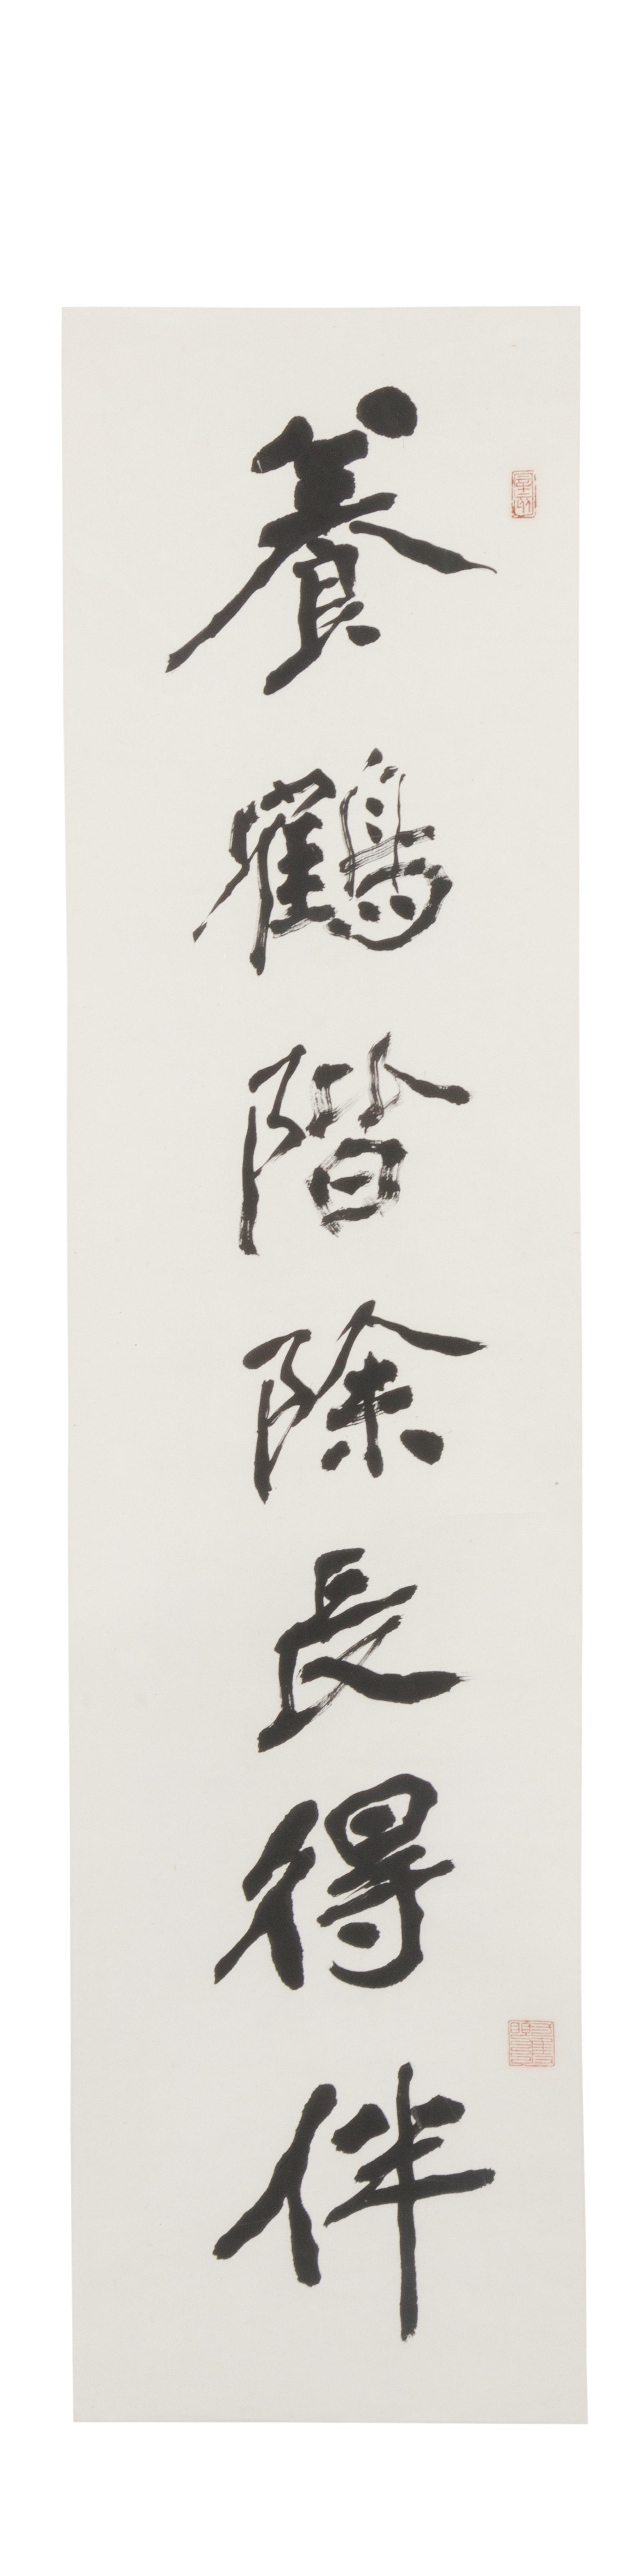 養鶴階除長得伴